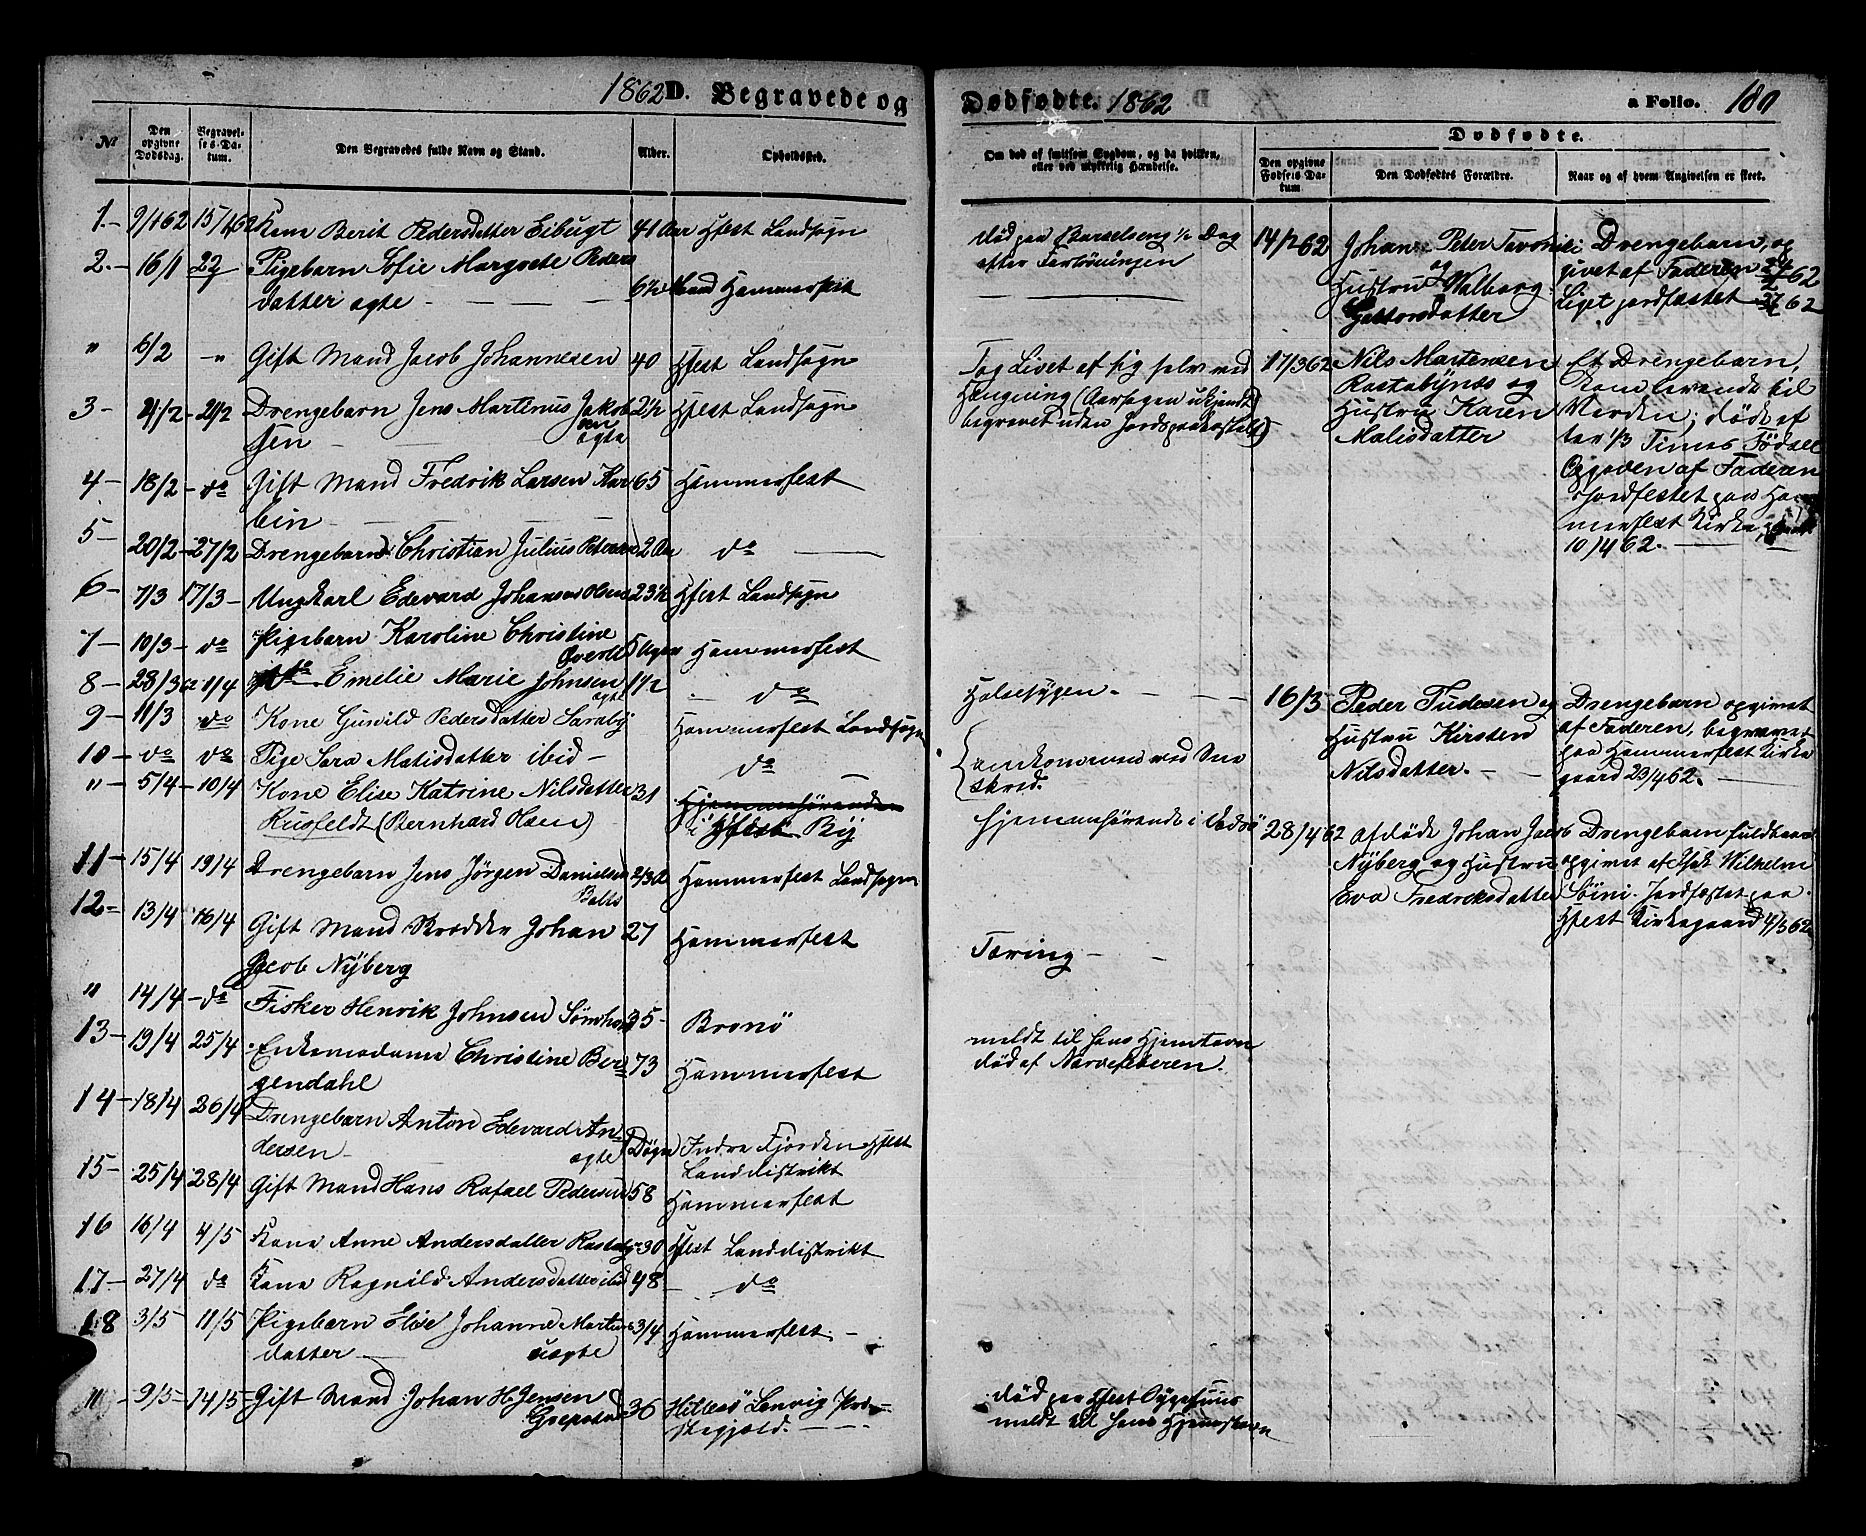 1862 D. Begravede og
Dødfødte. 1862
a Folio. 180
No
Den opgivne Dødsdag.
Begravelses-Datum.
Den Begravedes fulde Navn og Stand.
Alder.
Opholdssted.
Om død af smitsom Sygdom, og da hvilken,
eller ved ulykkelig Hændelse.
Dødfødte.
Den opgivne Fødsels Datum
Den Dødfødtes Forældre.
Naar og af hvem Angivelsen er skeet.
1.- 9/1 62 15/1 62 Kone Berit Pedersdatter Eibugt 41 Aar Hfest Landsogn
2.- 16/1 22 Pigebarn Sofie Margrete Peders
datter ægte 6 1/2 Hammerfest
" 6/2 -" Gift Mand Jacob Johannesen 40 Hfest Landsogn
3- 21/2 Drengebarn Jens Martinus Jakob 2 1/2 Hfest Landsogn
sen ægte
4- 18/2- do Gift Mand Fredrik Larsen Kar 65 Hammerfest
bin
5- 20/2-27/2 Drengebarn Christian Julius Petersen 2 Aar do
6- 7/3 17/3- Ungkarl Edevard Johansen Olsen 23 1/2 Hfest Landsogn
7- 10/3- do Pigebarn Karoline Christine
Hammerfest
8- 28/3 62 1/4 Emelie Marie Johnsen 1 1/2 do
ægte
9- 11/3 do Kone Gunild Pedersdatter Saraby Hammerfest Landsogn
10- do do Pige Sara Matisdatter ibid- do
"- 5/4 -10/4 Kone Elise Katrine Nilsdatter 31 Hjemmehørende
Rusfeldt (Bernhard Olsen) i Hfest By
11- 15/4 19/4 Drengebarn Jens Jørgen Danielsen 2/3 Hammerfest Landsogn
12- 13/4 16/4 Gift Mand Johan 27 Hammerfest
Jacob Nyberg
" 14/4 -do Fisker Henrik Johnsen 35- Brønø
13- 19/4 25/4 Enkemadame Christine Ber 73 Hammerfest
gendahl
14- 18/4 26/4 Drengebarn Anton Edevard An
dersen ægte Døgn Indre Fjorden Hfest
Landdistrikt
15- 25/4 28/4 Gift Mand Hans Rafael Pedersen 58
Hammerfest
16 16/4 4/5 Kone Anne Andersdatter 30 Hfest Landdistrikt
17- 27/4 do Kone Ragnild Andersdatter ibid 48 - do
18 3/5 11/5 Pigebarn Elise Johanne Martins 3/4 Hammerfest. -
datter uægte
" 9/5-14/5- Gift Mand Johan H. Jensen
36 Lenvig Præ-
stegjeld.
død paa Barselseng 1/2 Dag
efter Forløsningen
Tog Livet af sig selv ved
Hængning (Aarsagen ukjendt
begravet uden Jordspaakastelse)
Halsesygen. - - -
omkommen ved Snee
skred.
hjemmehørende i Vadsø
Tæring - -
meldt til hans Hjemstavn
død af Nervefeberen.
død paa Hfest Sygehuus
meldt til hans Hjemstavn
14/2 62 Johan Peter
og
Hustru Walborg
Drengebarn, op
givet af Faderen
Liget jordfæstet
17/3 62 Nils Martensen
Rastabynæs og
Hustru Karen
Malisdatter
Et Drengebarn,
kom levende til
Verden; døde ef
ter 1/3 Times Fødsel
Opgiven af Faderen
Jordfestet paa Ham
merfest Kirke
10/4 62.
16/3 Peder Tudesen og
Hustru Kirsten
Nilsdatter. - -
Drengebarn opgivet
af Faderen, begravet
paa Hammerfest Kirke
gaard 23/4 62.
28/4 62 afdøde Johan Jacob
Nyberg og Hustru
Eva Fredriksdatter
Drengebarn fuldbaaret
opgivet af Isak Wilhelm
Jordfæstet paa
Hfest Kirkegaard 4/5 62